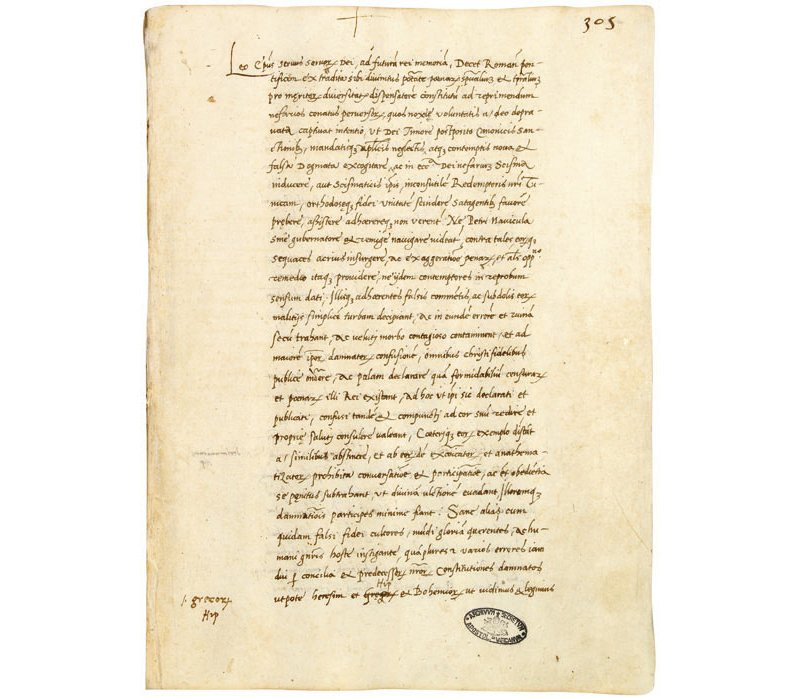 305
Leo Ep̄us servus servor̨ Dei, ad futurā rei memoriā, Decet Romanū pon-
tificem ex tradita sibi divinitus potāte penar̨ spūalium et tp̄ralium
pro meritor̨ diversitate dispensatorē constitutū ad reprimendum
nefarios conatus perversor̨, quos noxiē voluntatis adeo depra-
vata captivat intentio, ut Dei Timore postposito Canonicis San-
ctionibȝ, mandatisqȝ ap̄licis neglectis, atqȝ contemptis nova et
falsa Dogmata excogitare, ac in eccā Dei nefarium Scisma
inducere, aut Scismaticis ip̄is, inconsutilē Redemptoris nr̄i Tu-
nicam, orthodoxeqȝ fidei unitatē scindere satagentibȝ favorē
prebere, assistere adhaerereqȝ non verent. Ne Petri Navicula
sine gubernatore et remige navigare videat, contra tales eorqȝ
sequaces acrius insurgere, ac exaggeratione penar̨, et als opp.no
remedio itaqȝ providere, ne ijdem contemptores in reprobum
sensum dati, Illisqȝ adhaerentes falsis commētis, ac subdolis eor̨
malitijs simplicē turbam decipiant, Ac in eundē errorē et ruinā
secū trahant, Ac veluti morbo contagioso contaminent, et ad
maiorē ip̄or̨ damnator̨ confusionē, omnibus christi fidelibus
publicē, Ac palam declarare quā formidabiliū censurar̨
et poenar̨ illi Rei existant, Ad hoc ut ip̄i sic declarati et
publicati, confusi tandē et compuncti ad cor suū redire et
proprie saluti consulere valeant, Coeteriqȝ eor̨ exemplo discāt
a similibus abstinere, et ab eor̨ de excōicator̨, et anathema-
tizator̨ prohibita conversatione et participatione, ac et obedientia
se penitus subtrahant ut divinā ultionē evadant Illorumqȝ
damnationis participes minime fiant: Sane alias cum
quidam falsi fidei cultores, mūdi gloriā querentes, Ac hu-
mani gn̄ris hoste instigante, quā plures et varios errores iam
dui p concilia et predecessor̨ nr̄or̨ Constitutiones damnatos
Hip
utpote heresim et gregor̨ et Bohemior̨ ut vidimus et legimus
. grecor̨
Hip
ARCHIVUM SECRETUM APOSTOL. VATICANUM